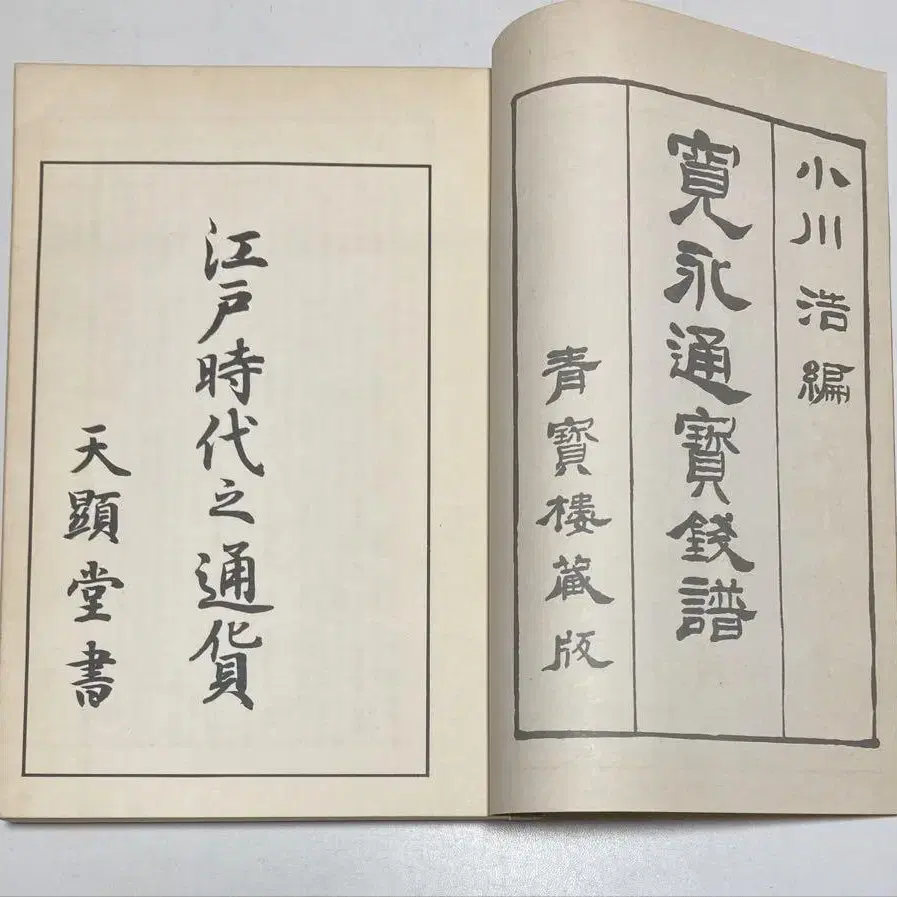 小川浩編
寛永通寳錢譜
青寳樓藏版
江戸時代之通貨
天顕堂書